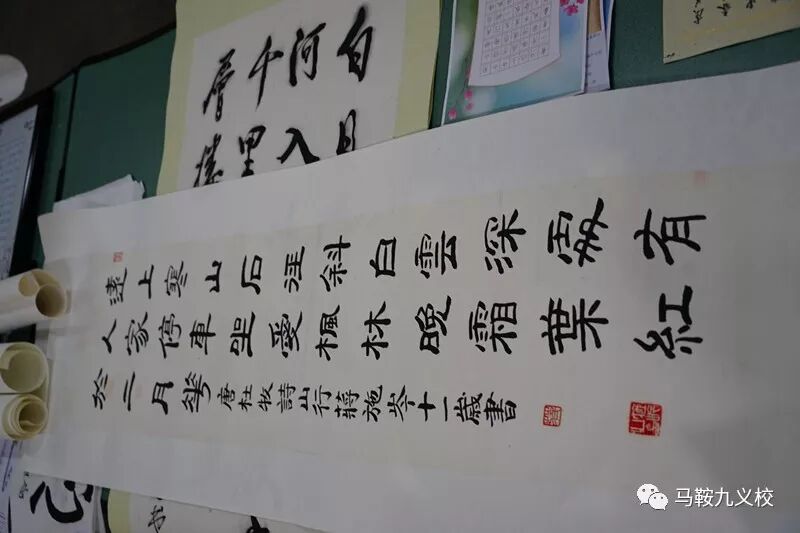 遠上寒山石徑斜白雲深處有
人家停車坐愛楓林晚霜葉紅
於二月華
唐杜牧詩山行蔣施岑十一歲書
白日
河入
千里
層樓
马鞍九义校